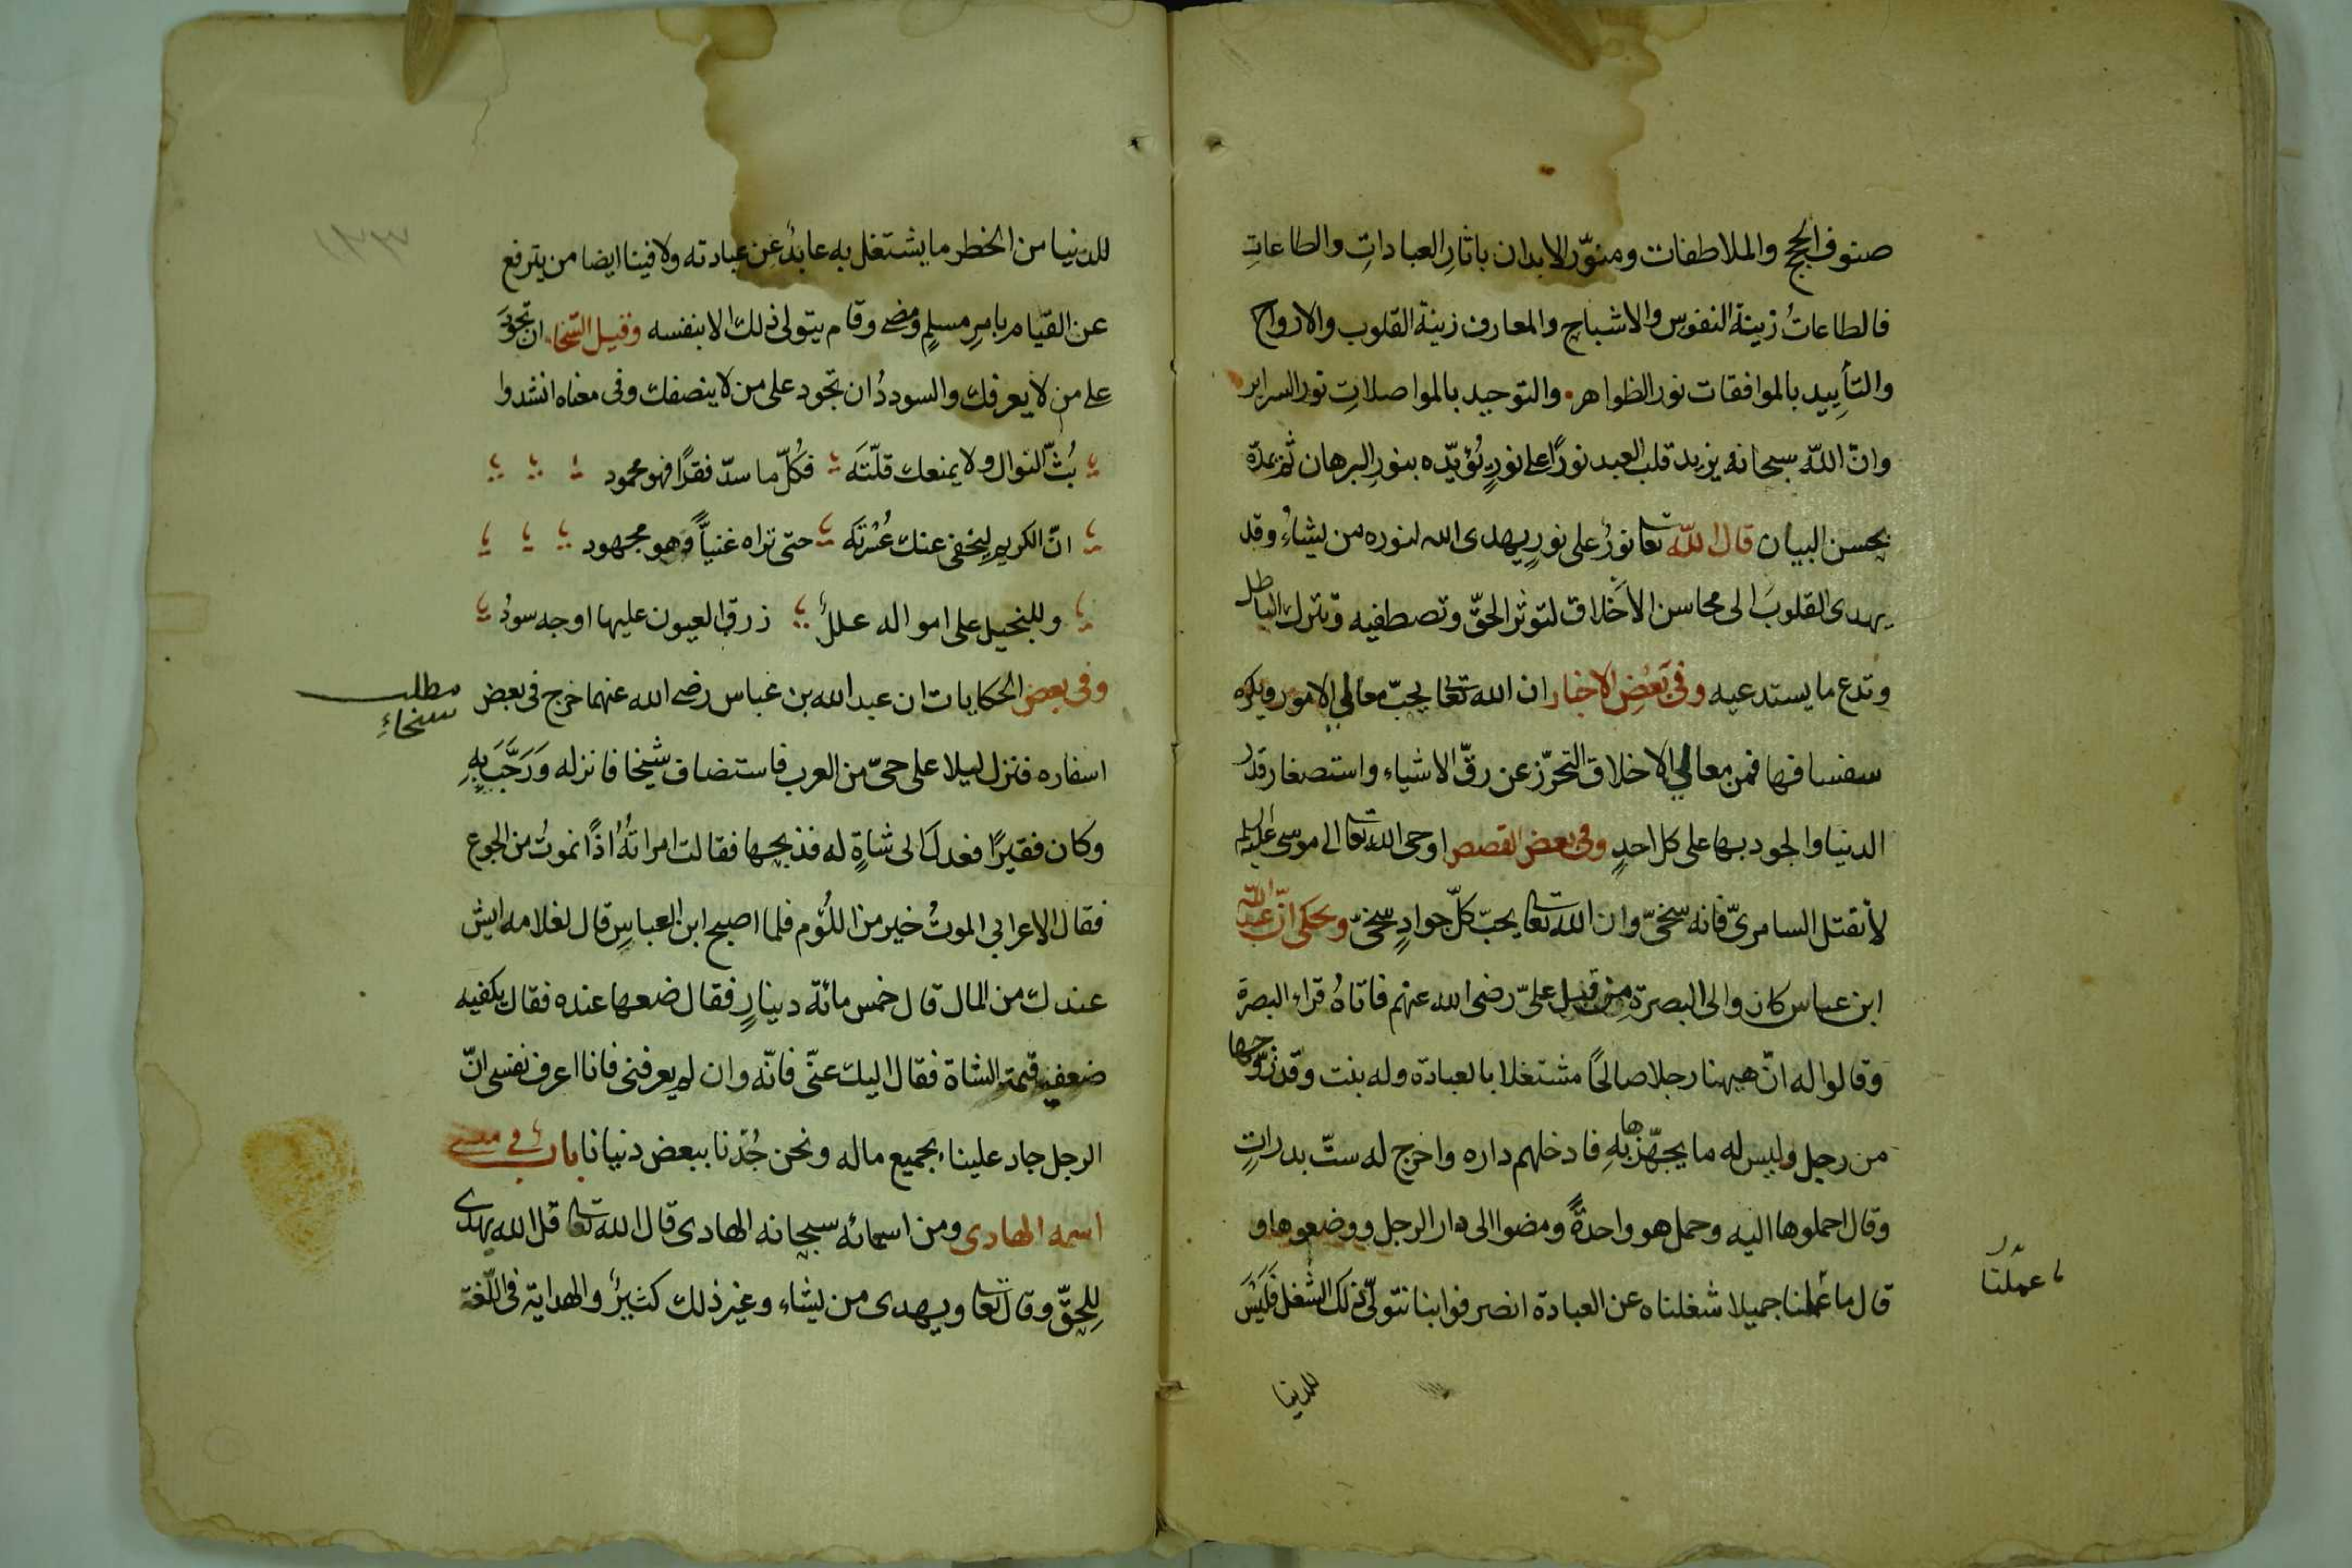 صنوف الحجج والملاطفات ومنوّر الابدان باثارِ العباداتِ والطاعاتِ
فالطاعاتُ زينة النفوس والاشباحِ والمعارف زينة القلوب والارواح
والتأييد بالموافقات نور الظواهر والتوحيد بالمواصلاتِ نور السراير
وانّ اللّه سبحانه يزيد قلب العبد نورًا على نورٍ يُؤيّده بنورِ البرهان ثم يمدّه
بحسن البيان قال اللّه تعا نورٌ على نورٍ يهدى الله لنوره من يشاءُ وقد
يهدى القلوبَ الى محاسن الأخلاق لتوثر الحقّ وتصطفيه وتترك الباطل
وتدع ما يستدعيه وفى بَعْضِ الاخبار ان الله تعا يحبّ معالي الامور ويكره
سفسافها فمن معالي الاخلاق التحرّز عن رقّ الاشياء واستصغار قدر
الدنيا والجود بها على كل احدٍ وفى بعض القصص اوحى الله تعا الى موسى عليه السلم
لأتقتل السامرىّ فانه سخىّ وان الله تعا يحبّ كلّ جوادٍ سخىّ ويحكى انّ عبد اللّه
ابن عباس كان والى البصرة من قبل علىّ رضى الله عنهم فاتاهُ قراء البصرة
وقالوا له انّ هيهنا رجلا صالحًا مشتغلا بالعبادة وله بنت وقد زوّجها
من رجل وليس له ما يجهّزها بهِ فادخلهم داره واخرج له ستّ بدراتٍ
وقال احملوها اليه وحمل هو واحدةً ومضوا الى دار الرجل ووضعوها و
قال ما عملنا جميلا شغلناه عن العبادة انصرفوا بنا نتولّى ذلك الشغل فَلَيْسَ
عملنا
للدنيا
للدنيا من الخطر ما يشتغل به عابدٌ عن عبادته ولا فينا ايضا من يترفع
عن القيام بامرِ مسلمٍ ومضى وقام يتولى ذلك الا بنفسه وقيل السّخاء ان تجود
على من لا يعرفك والسوددُ ان تجود على من لا ينصفك وفى معناه انشدوا
بُثّ النوال ولا يمنعك قلّتَه فكُلّ ما سدّ فقرًا فهو محمود
انّ الكريم ليخفى عنك عُسْرتَه حتى تراه غنيًّا وهو مجهود
وللبخيل على امواله عللٌ زرق العيون عليها اوجه سودُ
وفى بعض الحكايات ان عبد الله بن عباس رضى الله عنهما خرج فى بعض
مطلب
سخاء
اسفاره فنزل ليلا على حىّ من العرب فاستضاف شيخا فانزله وَرَحَّبَ بِهِ
وكان فقيرًا فعدل الى شاةٍ له فذبحها فقالت امراتُهُ اذًا نموتُ من الجوع
فقال الاعرابي الموتُ خير من اللُؤم فلما اصبح ابن العباسِ قال لغلامه ايش
عندك من المال قال خمس مائة دينارٍ فقال ضعها عنده فقال يكفيه
ضعفيه قيمة الشاة فقال اليك عنّى فانّه وان لم يعرفنى فانا اعرف نفسى انّ
الرجل جاد علينا بجميع ماله ونحن جُدْنا ببعض دنيانا باب فى معنى
اسمه الهادى ومن اسمائه سبحانه الهادى قال الله تعا قل الله يهدى
لِلحقّ وقال تعا ويهدى من يشاء وغير ذلك كثيرٌ والهداية فى اللّغة